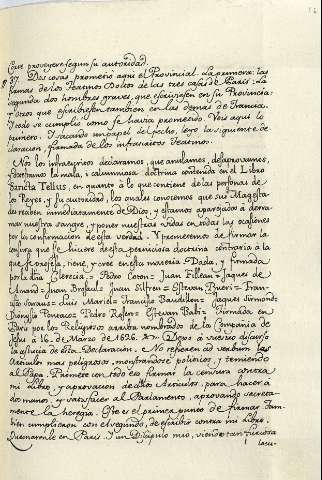 proveyere segun su autoridad.
27. Dos cosas prometiò aqui el Provincial. La primera: las
firmas de los Teatinos Doctos de las tres casas de Paris: La
segunda dos hombres graves, que escriviesen en su Provincia:
y otros que escribiesen tambien en las demas de Francia.
Todo se cumpliò como se havia prometido. Veis aqui lo
primero. Y sacando un papel del pecho, leyò la siguiente de
claracion, firmada de los infrascritos Teatinos.
No los infraescritos declaramos, que anulamos, desaprovamos,
y detestamos la mala, y calumniosa doctrina contenida en el Libro
Sancta Tellus, en quanto à lo que contiene de las personas de
los Reyes, y su autoridad, los quales conocemos que sus Magesta
des reciben inmediatamente de Dios, y estamos aparejados à derra
mar nuestra sangre, y poner nuestras vidas en todas las ocasiones
por la confirmacion de esta verdad. Y prometemos de firmar la
censura que se hiciere de esta perniciosa doctrina contraria à la
que se profesa, tiene, y cree en esta materia. Dada, y firmada
por la dicha Clerecia = Pedro Coton = Juan Filleau = Jaques de
= Juan = Juan = Estevan = Fran
cisco = Luis = Francisco = Jaques Sirmond =
Dionisio = Pedro = Estevan = Firmada en
Paris por los Religiosos arriba nombrados de la Compañia de
Jesus à 16. de Marzo de 1626. Dejo à vuestro discurso
la astucia de esta Declaracion. No refieren ad verbum los
Articulos mas peligrosos, mostrandose politicos, y temiendo
al Papa. Prometen con todo eso firmar la censura contra
mi Libro, y aprovacion de estos Articulos, para hacer à
dos manos, y satisfacer al Parlamento, aprovando secreta
mente la heregia. Este es el primer punto de firmar. Tam
bien cumplieron con el segundo, de escribir contra mi Libro.
Quemaronle en Paris. Y un Discipulo mio, viendo tan furiosa